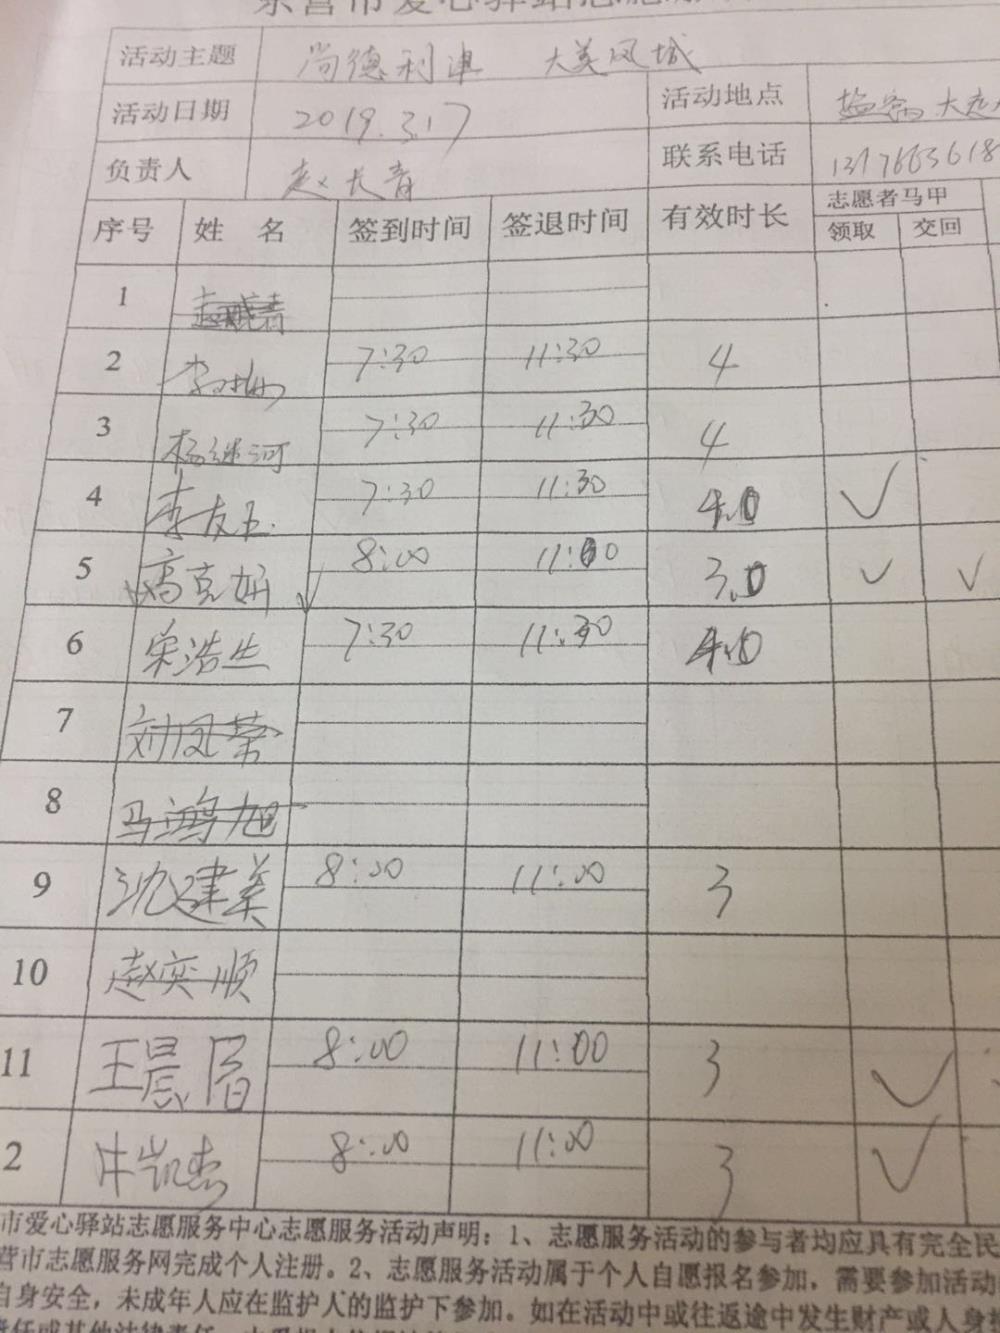 东营市爱心驿站志愿服
活动主题 尚德利津 大美凤城
活动日期 2019.3.17 活动地点
负责人 赵长青 联系电话 1317663618
序号 姓 名 签到时间 签退时间 有效时长 志愿者马甲
领取 交回
1
2 7:30 11:30 4
3 杨继河 7:30 11:30 4
4 李友玉 7:30 11:30 4.0 ✓
5 高克妍 8:00 11:00 3.0 ✓ ✓
6 宋浩生 7:30 11:30 4.0
7 刘凤荣
8 马鸿旭
9 沈建美 8:00 11:00 3
10 赵奕顺
11 王晨眉 8:00 11:00 3 ✓
2 牛凯杰 8:00 11:00 3 ✓
市爱心驿站志愿服务中心志愿服务活动声明：1、志愿服务活动的参与者均应具有完全民
营市志愿服务网完成个人注册。2、志愿服务活动属于个人自愿报名参加，需要参加活动
自身安全，未成年人应在监护人的监护下参加。如在活动中或往返途中发生财产或人身